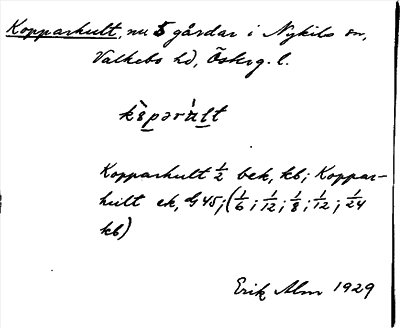 Kopparhult, nu 5 gårdar i Nykils sn,
Valkebo hd, Österg. l.
Kopparhult ½ bek, kb; Koppar-
hult ek, G45; (1/6; 1/12; 1/8; 1/12; 1/24
kb)
Erik Alm 1929